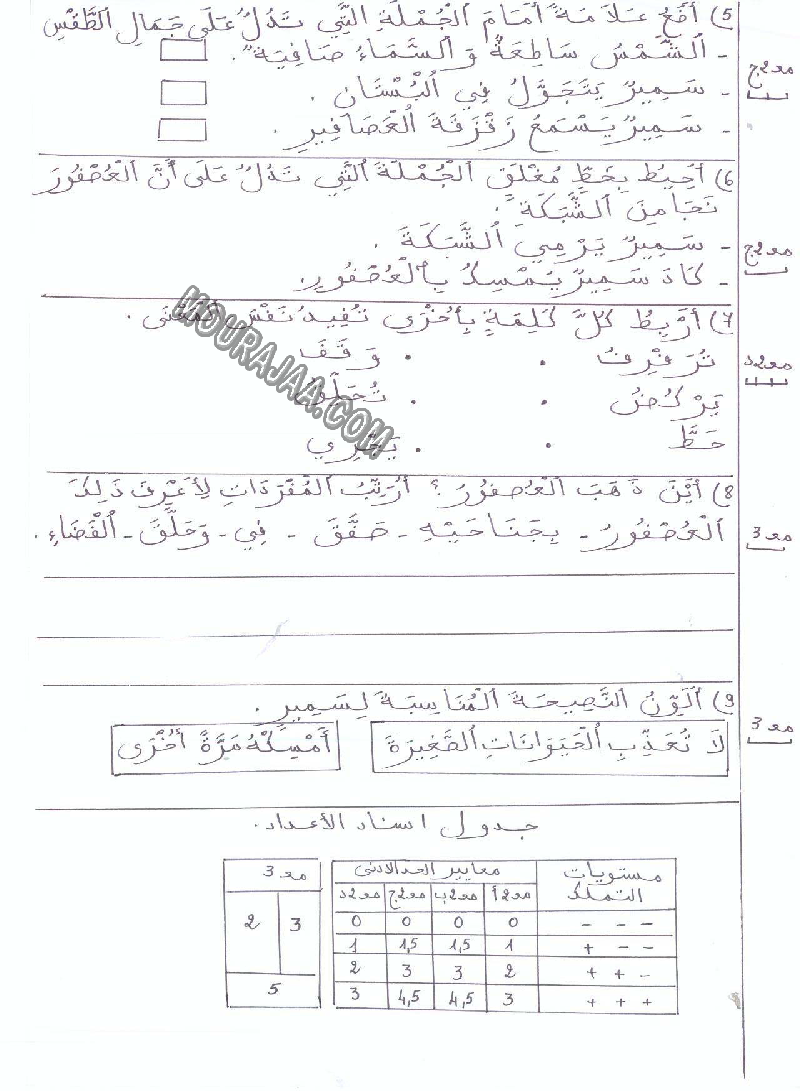 5) أَضَعُ عَلَامَةً أَمَامَ الْجُمْلَةِ الَّتِي تَدُلُّ عَلَى جَمَالِ الطَّقْسِ
- الشَّمْسُ سَاطِعَةٌ وَ السَّمَاءُ صَافِيَةٌ.
معـ2ج
- سَمِيرٌ يَتَجَوَّلُ فِي الْبُسْتَانِ.
- سَمِيرٌ يَسْمَعُ زَقْزَقَةَ الْعَصَافِيرِ.
6) أُحِيطُ بِخَطٍّ مُغْلَقٍ الْجُمْلَةَ الَّتِي تَدُلُّ عَلَى أَنَّ الْعُصْفُورَ
نَجَا مِنَ الشَّبَكَةِ.
- سَمِيرٌ يَرْمِي الشَّبَكَةَ.
معـ2ج
- كَادَ سَمِيرٌ يُمْسِكُ بِالْعُصْفُورِ.
7) أَرْبِطُ كُلَّ كَلِمَةٍ بِأُخْرَى تُفِيدُ نَفْسَ الْمَعْنَى.
MOURAJAA.COM
تُرَفْرِفُ . . وَقَفَ
معـ2د
يَرْكُضُ . . تُحَلِّقُ
حَطَّ . . يَجْرِي
8) أَيْنَ ذَهَبَ الْعُصفُورُ؟ أُرَتِّبُ الْمُفْرَدَاتِ لِأَعْرِفَ ذَلِكَ
الْعُصْفُورُ - بِجَنَاحَيْهِ - صَفَّقَ - فِي - وَحَلَّقَ - الْفَضَاءِ.
معـ3
9) أُلَوِّنُ النَّصِيحَةَ الْمُنَاسِبَةَ لِسَمِيرٍ.
معـ3
لَا تُعَذِّبِ الْحَيَوَانَاتِ الصَّغِيرَةَ
أَمْسِكْهُ مَرَّةً أُخْرَى
جدول اسناد الأعداد.
مستويات التملك معايير الحد الأدنى معـ3
معـ2أ معـ2ب معـ2ج معـ2د
- - - 0 0 0 0
+ - - 1 1,5 1,5 1
3 2
+ + - 2 3 3 2
+ + + 3 4,5 4,5 3
5